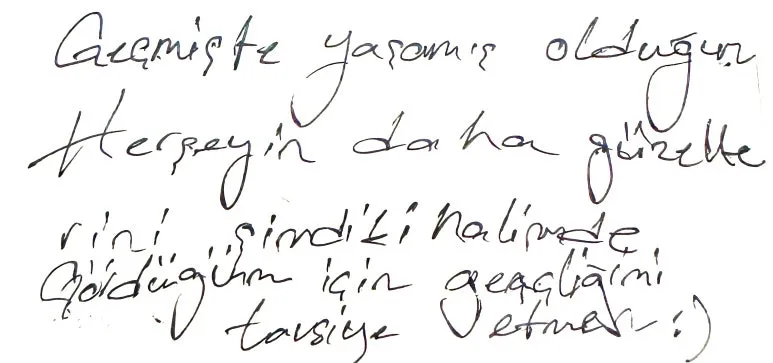 Geçmişte yaşamış olduğum
Herşeyin daha güzelle
rini şimdiki halimde
Gördüğüm için gençliğimi
tavsiye etmem :)